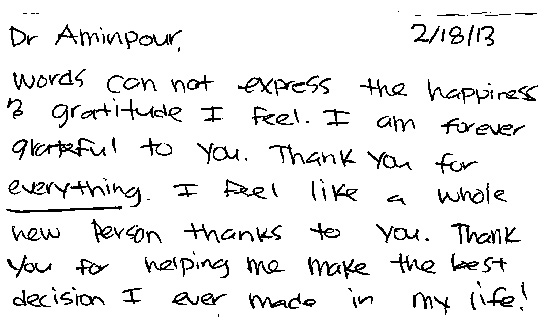 Dr Aminpour, 2/18/13
words can not express the happiness
& gratitude I feel. I am forever
grateful to you. Thank you for
everything. I feel like a whole
new person thanks to you. Thank
you for helping me make the best
decision I ever made in my life!